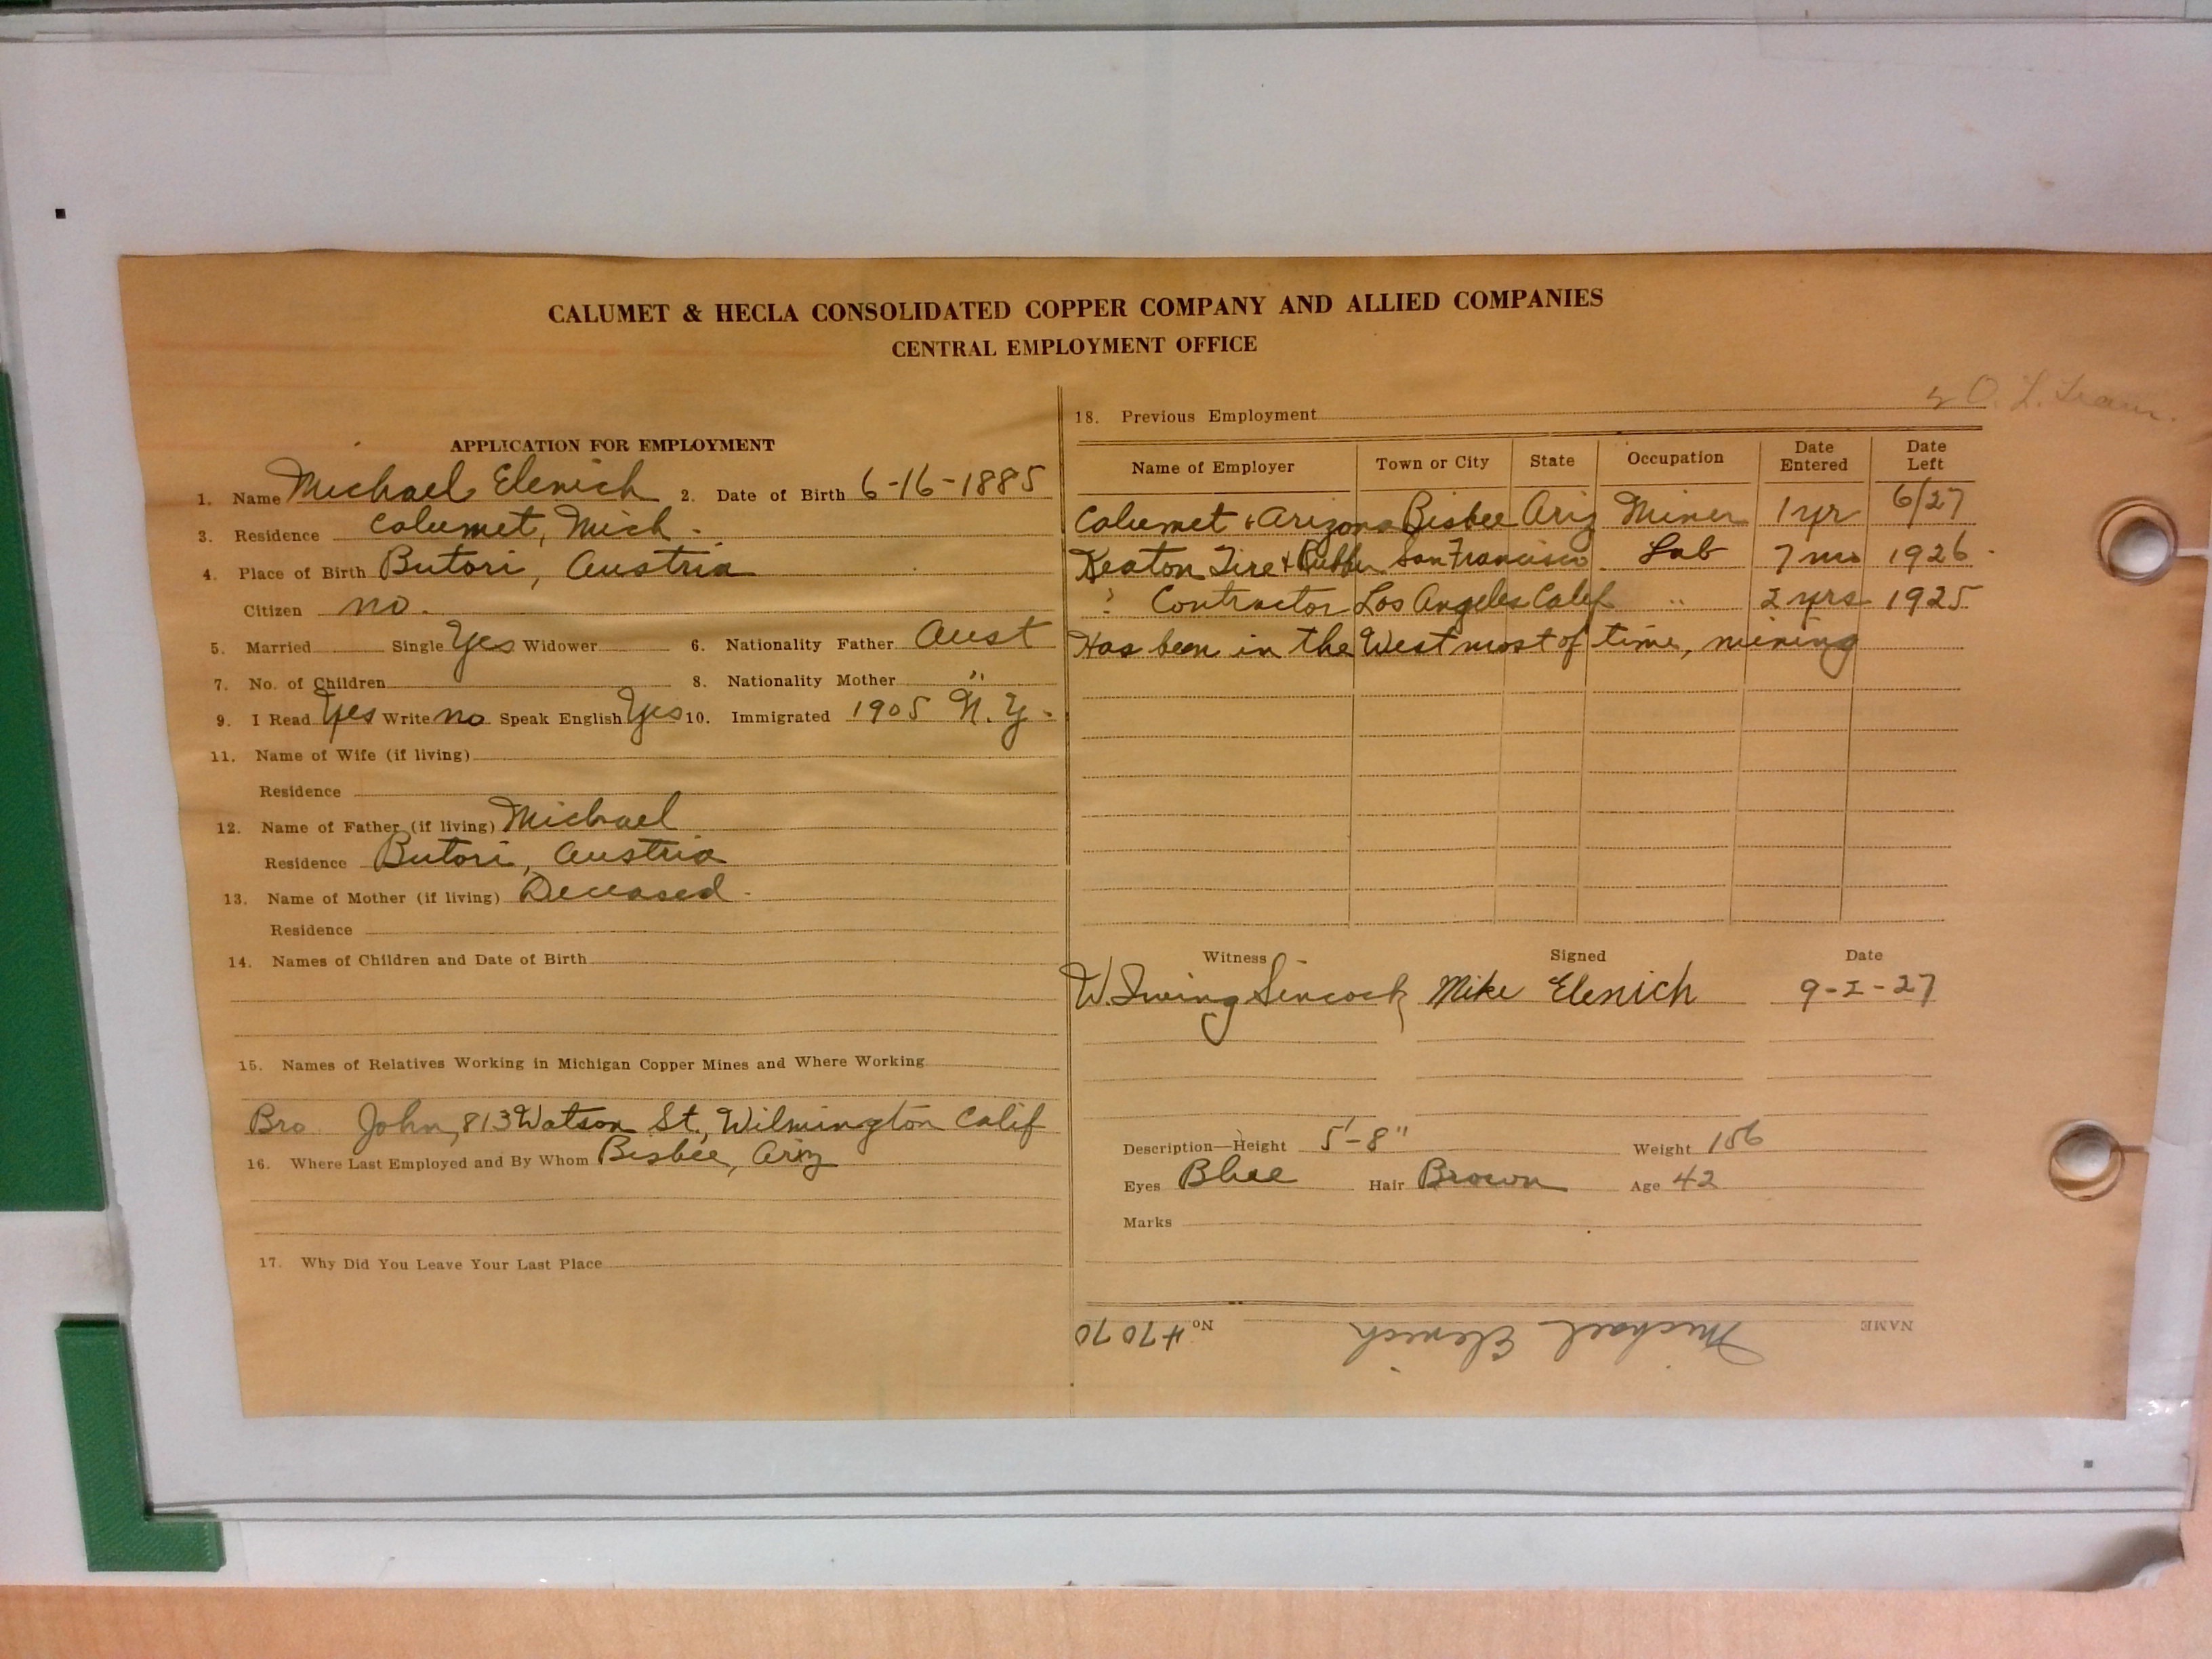 CALUMET & HECLA CONSOLIDATED COPPER COMPANY AND ALLIED COMPANIES
CENTRAL EMPLOYMENT OFFICE
APPLICATION FOR EMPLOYMENT
1. Name Michael Elenich 2. Date of Birth 6-16-1885
3. Residence Calumet, Mich.
4. Place of Birth Butori, Austria
Citizen no.
5. Married Single Yes Widower 6. Nationality Father Aust
7. No. of Children 8. Nationality Mother "
9. I Read Yes Write no Speak English Yes 10. Immigrated 1905 N.Y.
11. Name of Wife (if living)
Residence
12. Name of Father (if living) Michael
Residence Butori, Austria
13. Name of Mother (if living) Deceased
Residence
14. Names of Children and Date of Birth
15. Names of Relatives Working in Michigan Copper Mines and Where Working
Bro John, 813 Watson St., Wilmington Calif
16. Where Last Employed and By Whom Bisbee, Ariz
17. Why Did You Leave Your Last Place
18. Previous Employment
Name of Employer Town or City State Occupation Date Entered Date Left
Calumet + Arizona Bisbee Ariz Miner 1 yr 6/27
Keaton Tire + Rubber San Francisco Lab 7 mo 1926
? Contractor Los Angeles Calif " 2 yrs 1925
Has been in the West most of time, mining
Witness Signed Date
W. Irving Sincock Mike Elenich 9-1-27
Description—Height 5'-8" Weight 156
Eyes Blue Hair Brown Age 42
Marks
NAME Michael Elenich No. 47070